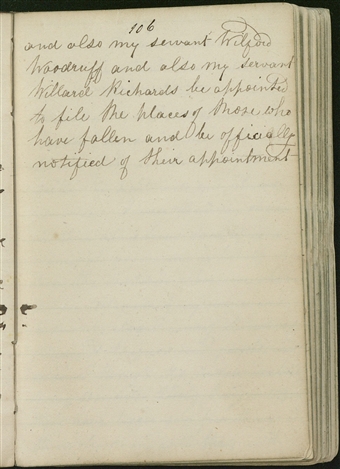 106
and also my servant Wilford
Woodruff and also my servant
Willard Richards be appointed
to file the places of those who
have fallen and be officially
notified of their appointment